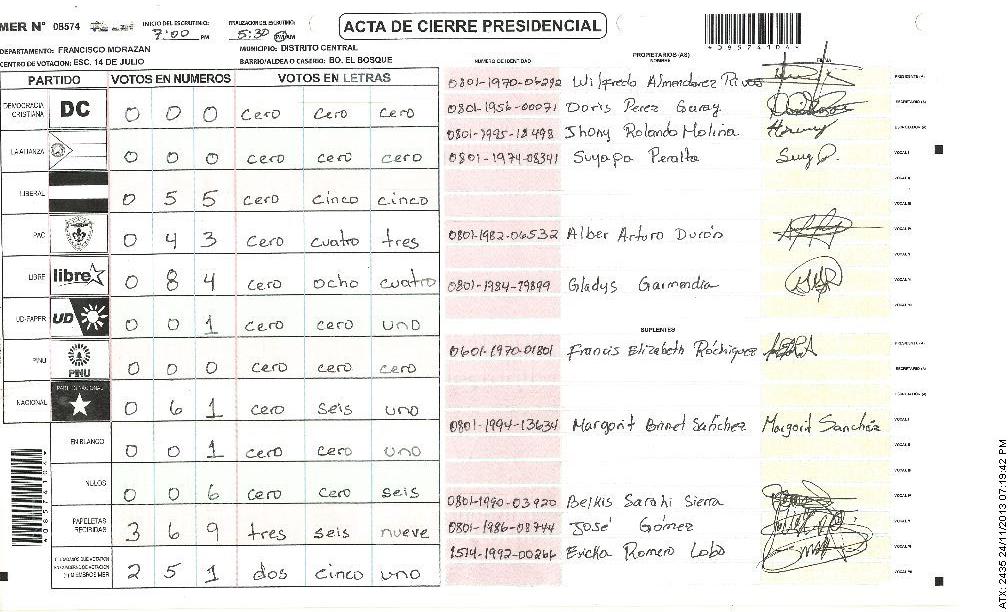 MER N° 08574
INICIO DEL ESCRUTINIO: 7:00 PM
FINALIZACION DEL ESCRUTINIO: 5:30 PM AM
ACTA DE CIERRE PRESIDENCIAL
*08574104*
DEPARTAMENTO: FRANCISCO MORAZAN
MUNICIPIO: DISTRITO CENTRAL
CENTRO DE VOTACION: ESC. 14 DE JULIO
BARRIO/ALDEA O CASERIO: BO. EL BOSQUE
PARTIDO VOTOS EN NUMEROS VOTOS EN LETRAS
DEMOCRACIA CRISTIANA DC 0 0 0 cero cero cero
LA ALIANZA 0 0 0 cero cero cero
LIBERAL 0 5 5 cero cinco cinco
PAC 0 4 3 cero cuatro tres
LIBRE libre 0 8 4 cero ocho cuatro
UD-FAPER UD 0 0 1 cero cero uno
PINU PINU 0 0 0 cero cero cero
NACIONAL PARTIDO NACIONAL 0 6 1 cero seis uno
EN BLANCO 0 0 1 cero cero uno
NULOS 0 0 6 cero cero seis
PAPELETAS RECIBIDAS 3 6 9 tres seis nueve
2 5 1 dos cinco uno
NUMERO DE IDENTIDAD
PROPIETARIOS(AS)
NOMBRE
FIRMA
0801-1970-06292 Wilfredo Almendarez Rivas PRESIDENTE (A)
0801-1956-00071 Doris Perez Garay SECRETARIO (A)
0801-1995-18498 Jhony Rolando Molina ESCRUTADOR (A)
0801-1974-08341 Suyapa Peralta VOCAL I
0801-1982-06532 Alber Arturo Durón
0801-1984-79899 Gladys Garmendia
SUPLENTES
0601-1970-01801 Francis Elizabeth Rodriguez PRESIDENTE (A)
SECRETARIO (A)
ESCRUTADOR (A)
0801-1994-13634 Margorit Sanchez Margorit Sanchez VOCAL I
0801-1990-03920 Belkis Sarahi Sierra
0801-1986-08744 José Gómez
1514-1992-00266 Ericka Romero Lobo
*08574104*
ATX: 2435 24/11/2013 07:19:42 PM